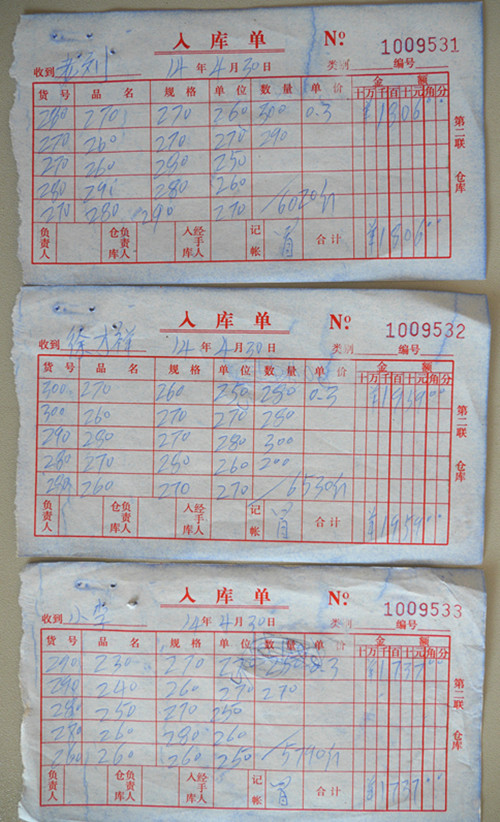 入库单 Nº 1009531
收到 老刘 14 年 4 月 30 日 类别 编号
货号 品名 规格 单位 数量 单价 金额
十万千百十元角分
280 270 270 260 300 0.3 ¥1806 00
270 260 270 270 290
270 260 280 250
280 290 280 260
270 280 290 270 /6020个
第二联 仓库
负责人 仓库负责人 入库经手人 记帐 合计 ¥1806 00
入库单 Nº 1009532
收到 徐才祥 14 年 4 月 30 日 类别 编号
货号 品名 规格 单位 数量 单价 金额
十万千百十元角分
300 270 260 250 280 0.3 ¥1959 00
300 260 270 270 280
290 280 270 280 300
280 270 280 260 200
280 260 270 270 /6530个
第二联 仓库
负责人 仓库负责人 入库经手人 记帐 合计 ¥1959 00
入库单 Nº 1009533
收到 小李 14 年 4 月 30 日 类别 编号
货号 品名 规格 单位 数量 单价 金额
十万千百十元角分
290 230 270 ¥1737 00
290 240 260 270 270
280 250 270 250
270 260 280 260
260 260 260 250 /5790个
第二联 仓库
负责人 仓库负责人 入库经手人 记帐 合计 ¥1737 00